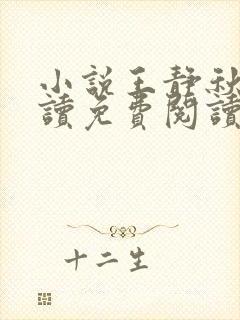 小說王靜秋
讀免費閱讀
十二生